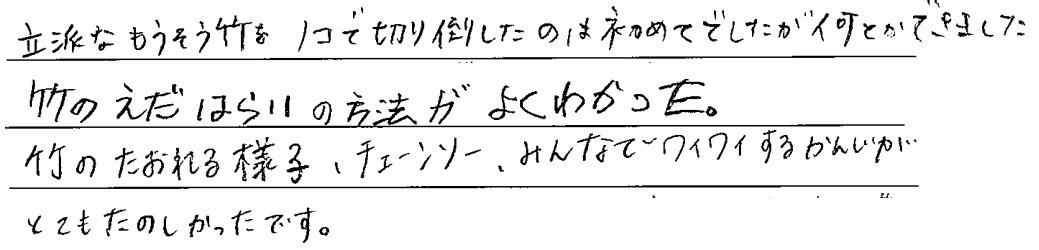 立派なもうそう竹を ノコで切り倒したのは初めてでしたが何とかできました
竹のえだはらいの方法がよくわかった。
竹のたおれる様子、チェーンソー、みんなでワイワイするかんじが
とてもたのしかったです。